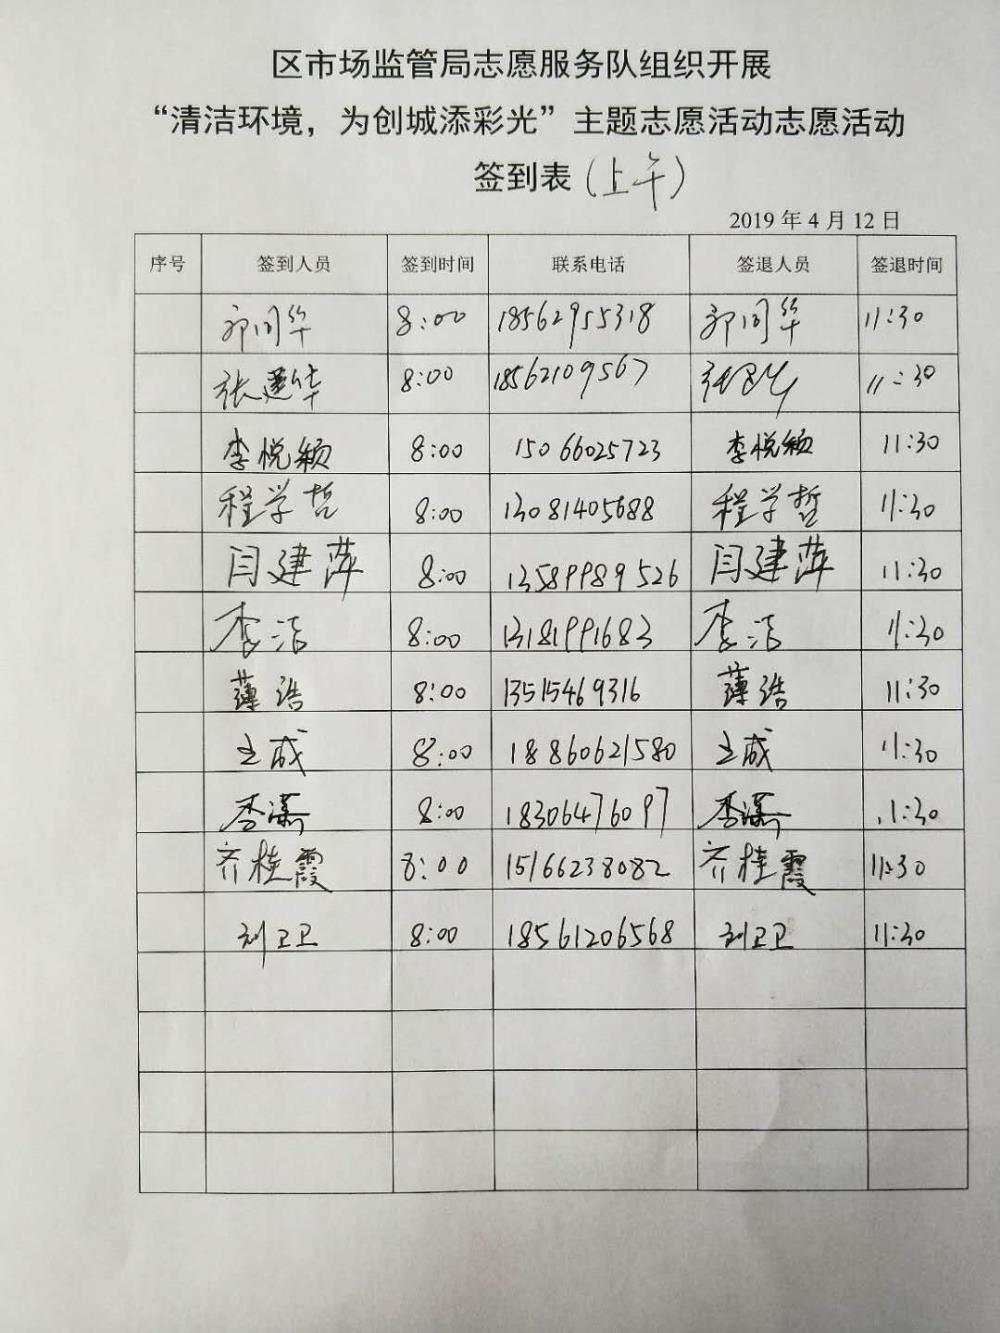 区市场监管局志愿服务队组织开展
“清洁环境，为创城添彩光”主题志愿活动志愿活动
签到表（上午）
2019年4月12日
序号 签到人员 签到时间 联系电话 签退人员 签退时间
郭同华 8:00 18562955318 郭同华 11:30
张建华 8:00 18562109567 11:30
李悦颖 8:00 15066025723 李悦颖 11:30
程学哲 8:00 13081405688 程学哲 11:30
闫建萍 8:00 13589989526 闫建萍 11:30
李洁 8:00 13181991683 李洁 11:30
薄浩 8:00 13515469316 薄浩 11:30
王成 8:00 18860621580 王成 11:30
李潇 8:00 18306476097 李潇 11:30
齐桂霞 8:00 15166238082 齐桂霞 11:30
刘卫卫 8:00 18561206568 刘卫卫 11:30